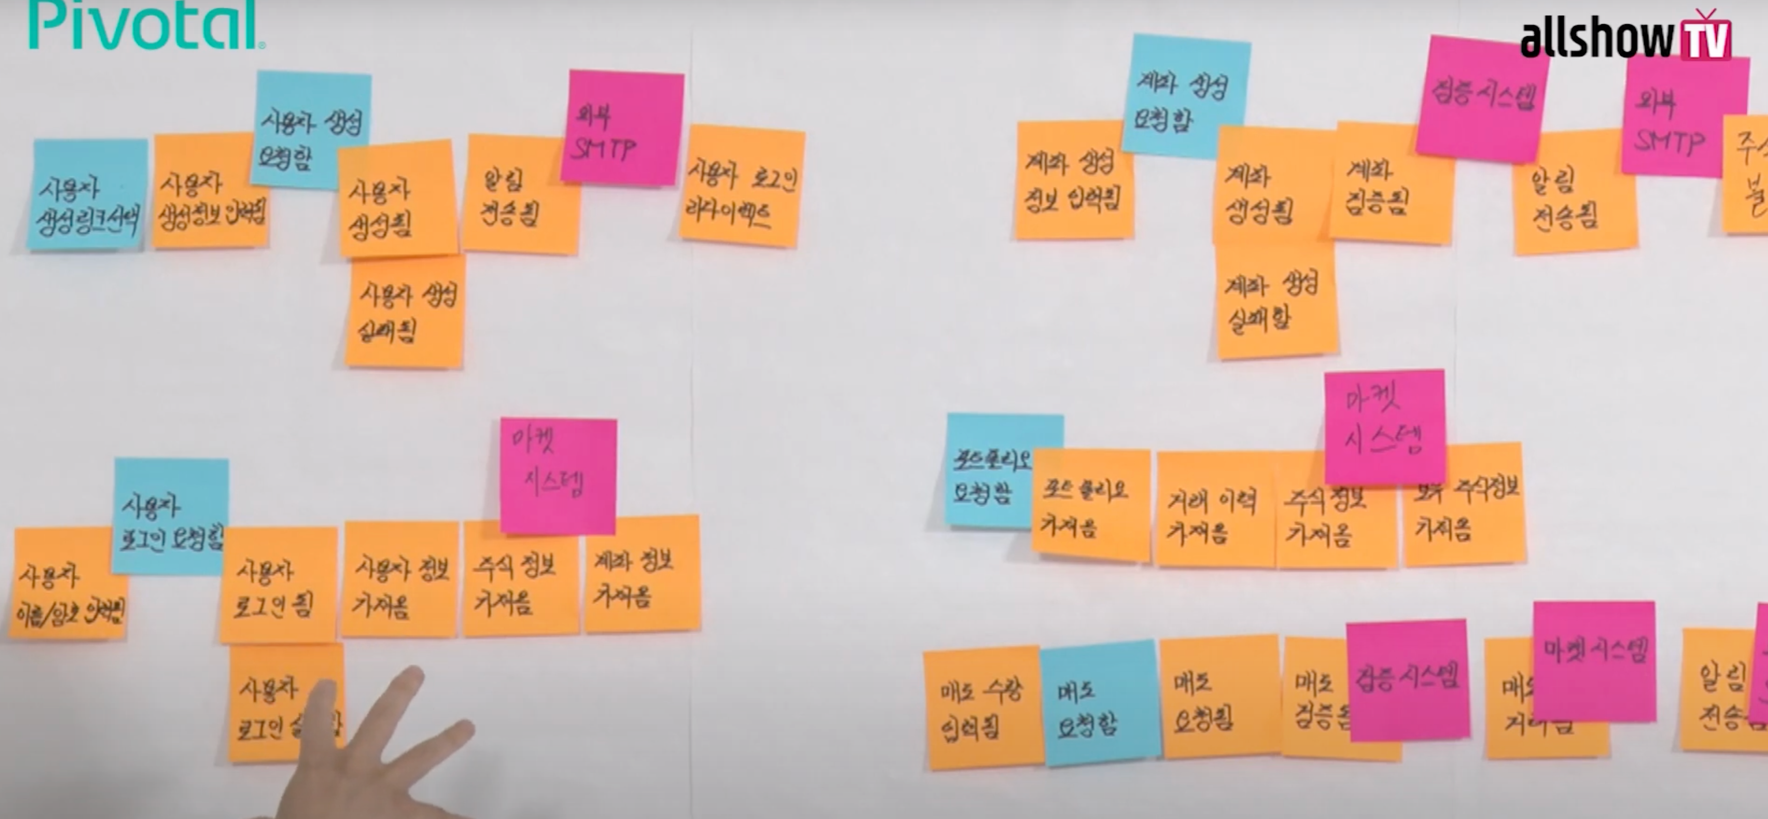 Pivotal
allshowTV
사용자
생성링크선택
사용자
생성정보 입력됨
사용자 생성
요청함
사용자
생성됨
사용자 생성
실패됨
알림
전송됨
외부
SMTP
사용자 로그인
리다이렉트
계좌 생성
정보 입력됨
계좌 생성
요청함
계좌
생성됨
계좌 생성
실패함
계좌
검증됨
검증시스템
알림
전송됨
외부
SMTP
사용자
이름/암호 입력됨
사용자
로그인 요청함
사용자
로그인 됨
사용자
로그인
사용자 정보
가져옴
주식 정보
가져옴
마켓
시스템
계좌 정보
가져옴
포트폴리오
요청함
포트폴리오
가져옴
거래 이력
가져옴
주식 정보
가져옴
마켓
시스템
보유 주식정보
가져옴
매도 수량
입력됨
매도
요청함
매도
요청됨
매도
검증됨
검증시스템
매도
거래됨
마켓시스템
알림
전송됨